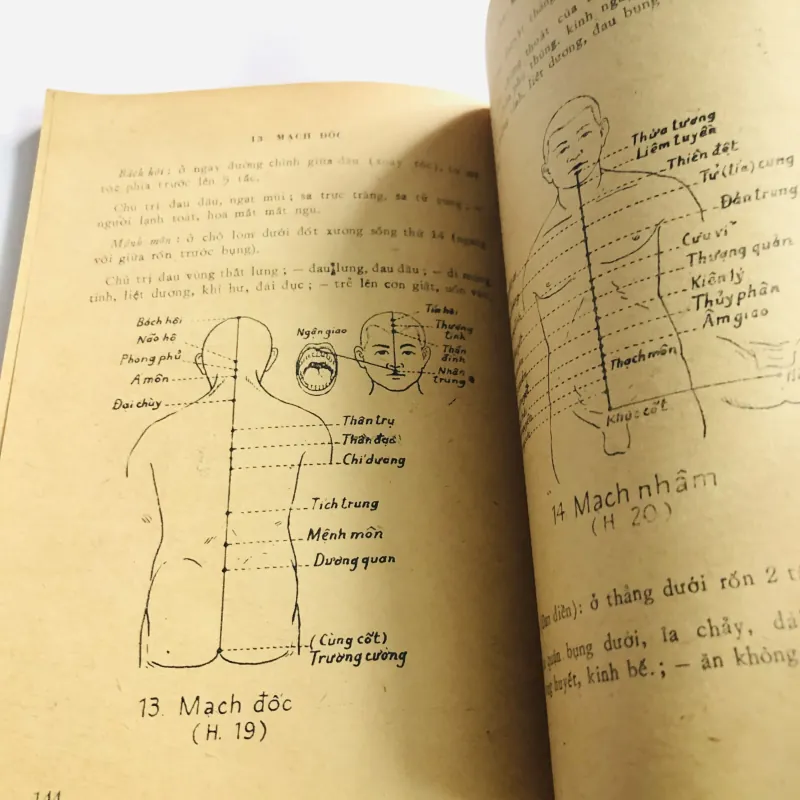 13 MẠCH ĐỐC
Bách hội : ở ngay đường chính giữa đầu (xoáy tóc), từ
tóc phía trước lên 5 tấc.
Chủ trị đau đầu, ngạt mũi ; sa trực tràng, sa tử cung ; —
người lạnh toát, hoa mắt mất ngủ.
Mệnh môn : ở chỗ lõm dưới đốt xương sống thứ 14 (ngang
với giữa rốn trước bụng).
Chủ trị đau vùng thắt lưng ; — đau lưng, đau đầu ; — di mộng
tinh, liệt dương, khí hư, đái đục ; — trẻ lên cơn giật, uốn ván
Bách hội
Não hộ
Phong phủ
Á môn
Đại chùy
Ngân giao
Tín hội
Thượng
tinh
Thần
đình
Nhân
trung
Thân trụ
Thần đạo
Chí dương
Tích trung
Mệnh môn
Dương quan
(Cùng cốt)
Trường cường
13. Mạch đốc
(H. 19)
144
thoát của
phù thũng, kinh
liệt dương, đau bụng
Thừa tương
Liêm tuyền
Thiên đột
Tử (tín) cung
Đản trung
Cưu vĩ
Thượng quản
Kiên lý
Thủy phân
Âm giao
Thạch môn
Khúc cốt
14 Mạch nhâm
(H. 20)
điền): ở thẳng dưới rốn 2
quặn bụng dưới, ỉa chảy,
huyết, kinh bế. ; — ăn không